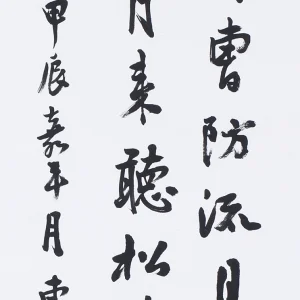 曹防流
月来聽松
甲辰嘉平月